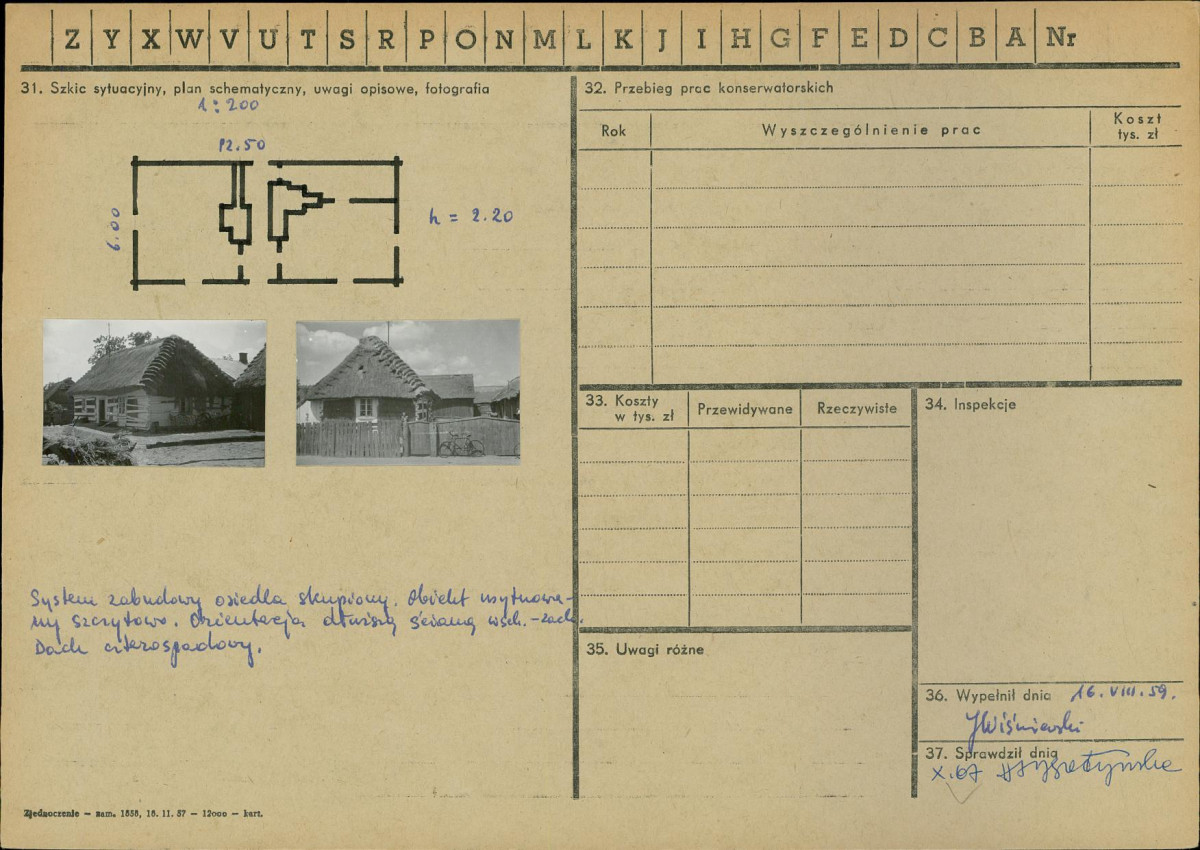 Z Y X W V U T S R P O N M L K J I H G F E D C B A Nr
31. Szkic sytuacyjny, plan schematyczny, uwagi opisowe, fotografia
1:200
12.50
6.00
h = 2.20
System zabudowy osiedla skupiony. Obiekt usytuowa-
ny szczytowo. Orientacja dłuższą ścianą wsch.-zach.
Dach czterospadowy.
Zjednoczenie — zam. 1558, 18. 11. 57 — 12000 — kart.
32. Przebieg prac konserwatorskich
Rok
Wyszczególnienie prac
Koszt
tys. zł
33. Koszty
w tys. zł
Przewidywane
Rzeczywiste
34. Inspekcje
35. Uwagi różne
36. Wypełnił dnia 16.VIII.59.
JWiśniewski
37. Sprawdził dnia
X.67